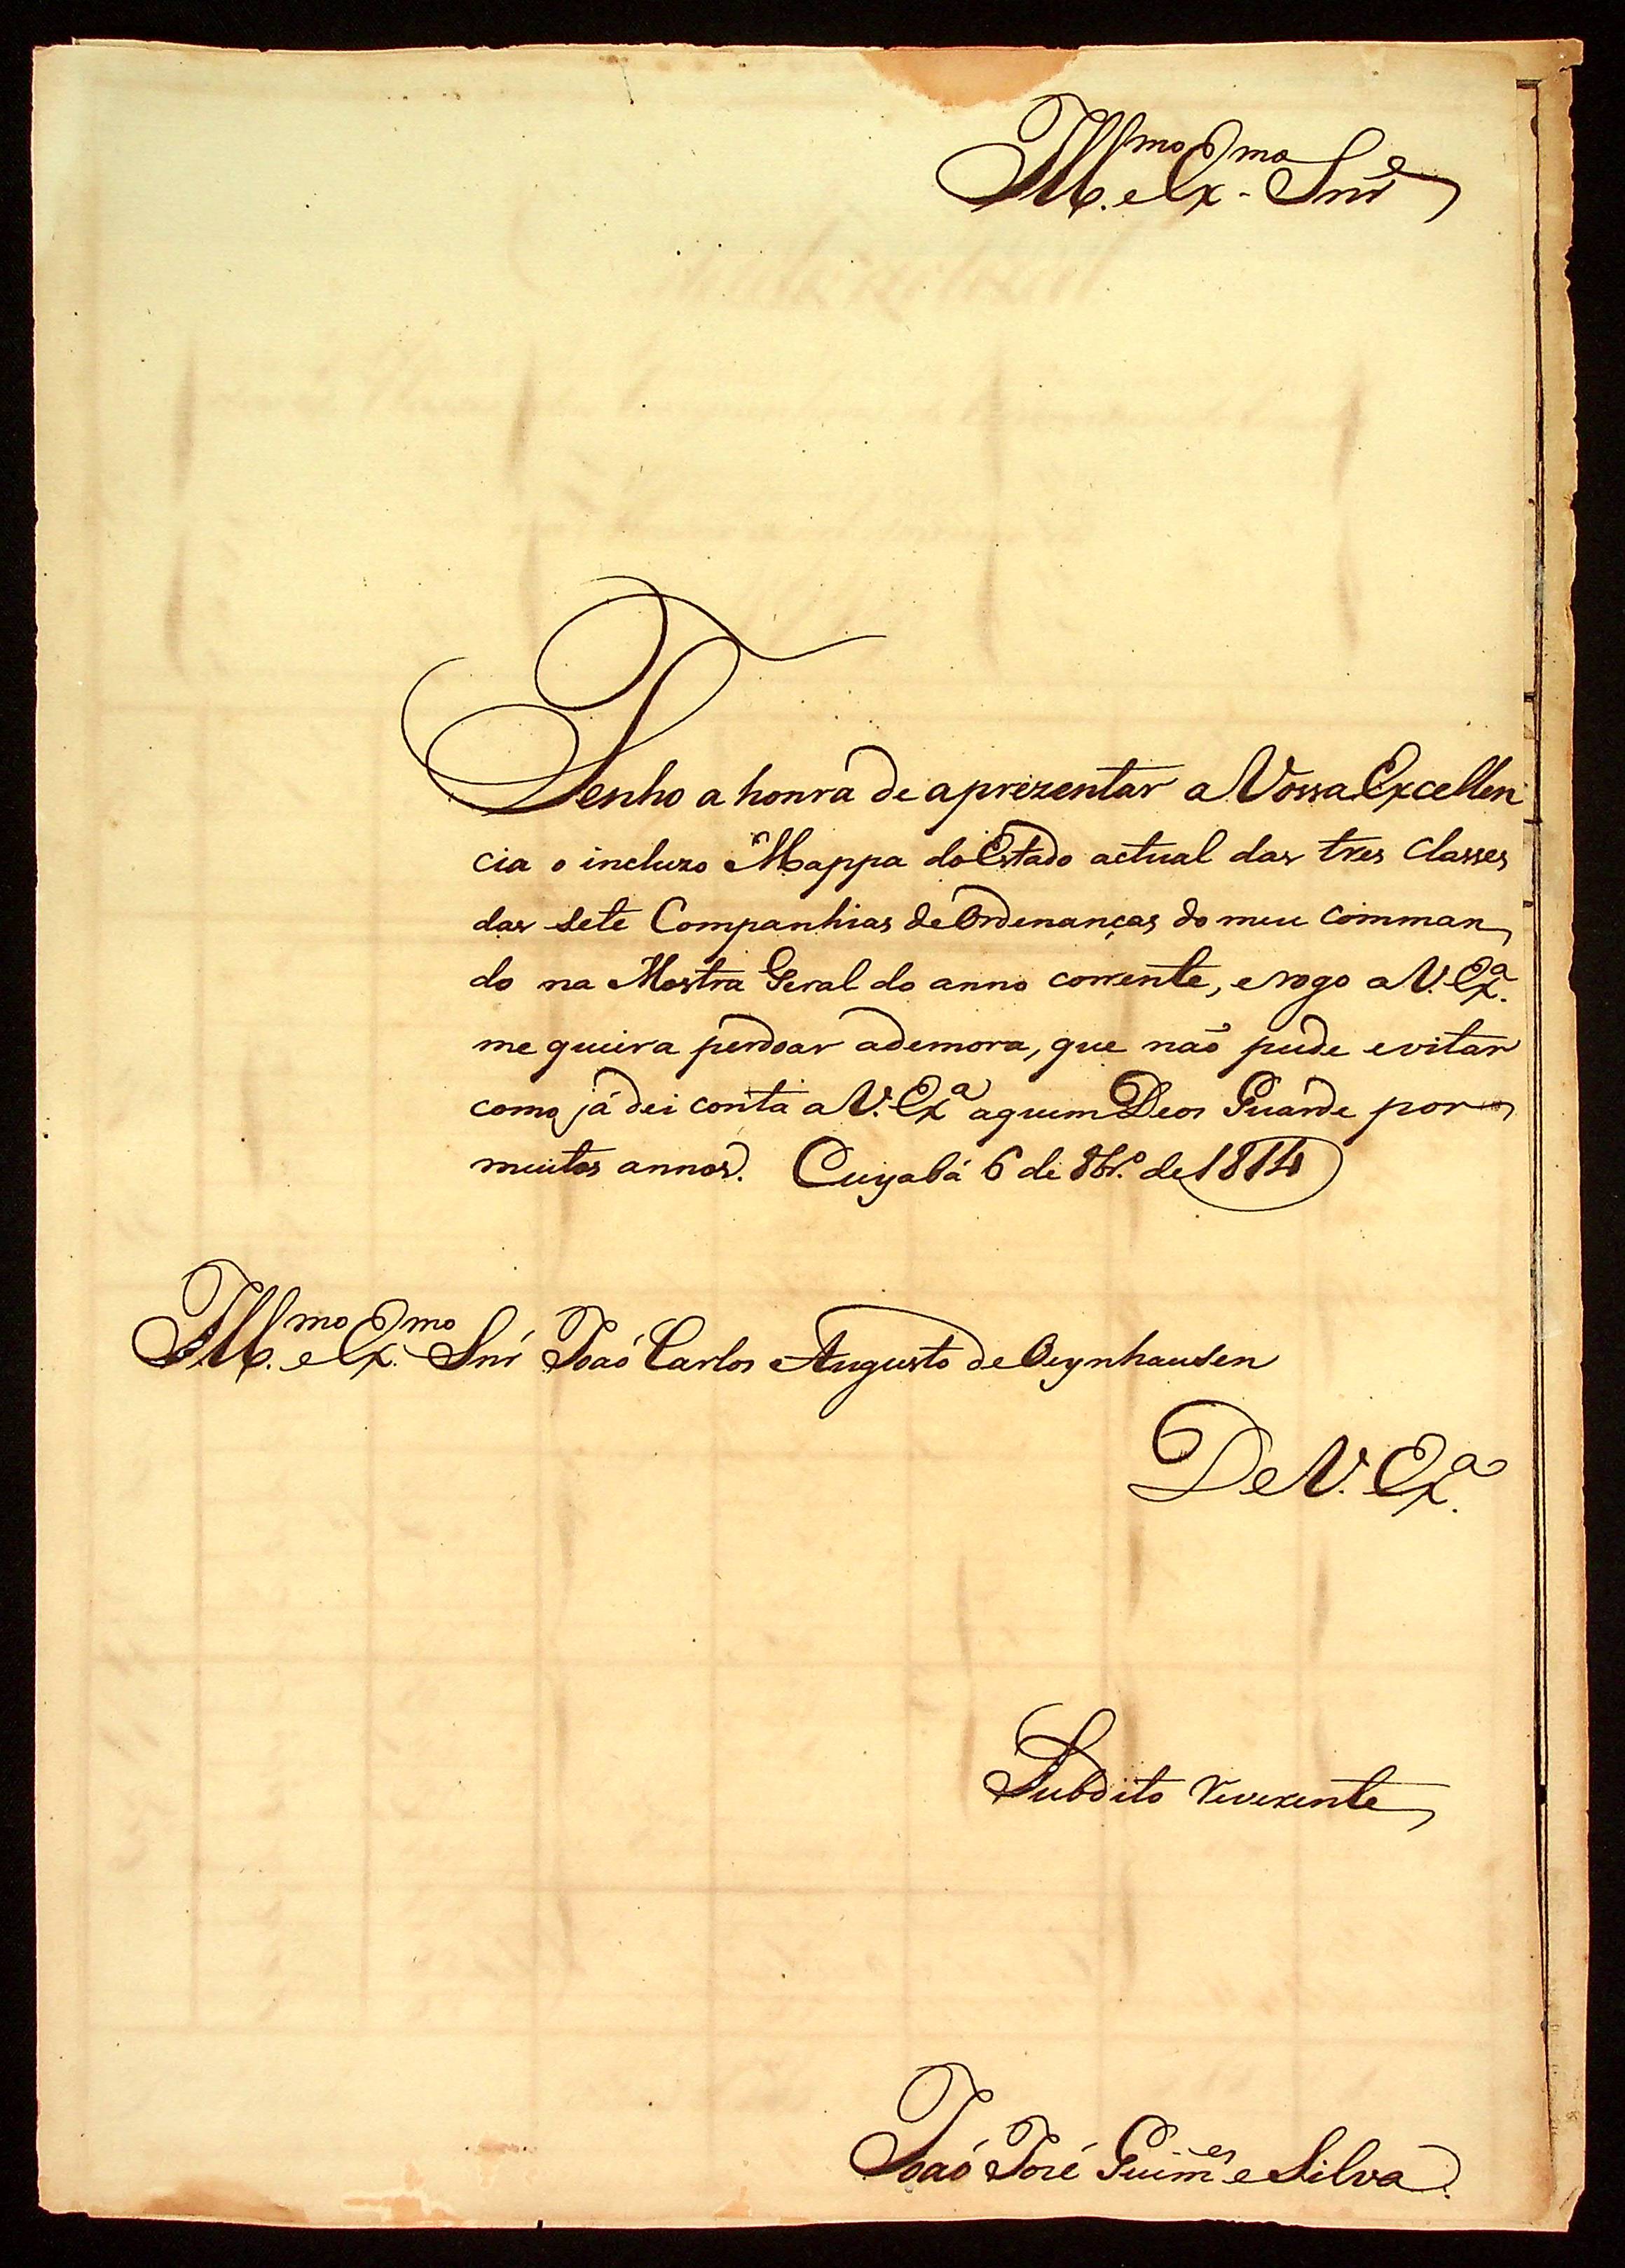 Ill.mo e Ex.mo Snr̃
Tenho a honra de aprezentar a Vossa Excellen
cia o incluzo Mappa do Estado actual das tres Classes
das sete Companhias de Ordenanças do meu comman
do na Mostra Geral do anno corrente, e rogo a V. Ex.ª
me queira perdoar a demora, que naõ pude evitar
como já dei conta a V. Ex.ª a quem Deos Guarde por
muitos annos. Cuyabá 6 de 8br.º de 1814
Ill.mo e Ex.mo Snr̃ Joaõ Carlos Augusto de Oeynhausen
De V. Ex.ª
Subdito reverente
Joaõ José Guim.es e Silva.